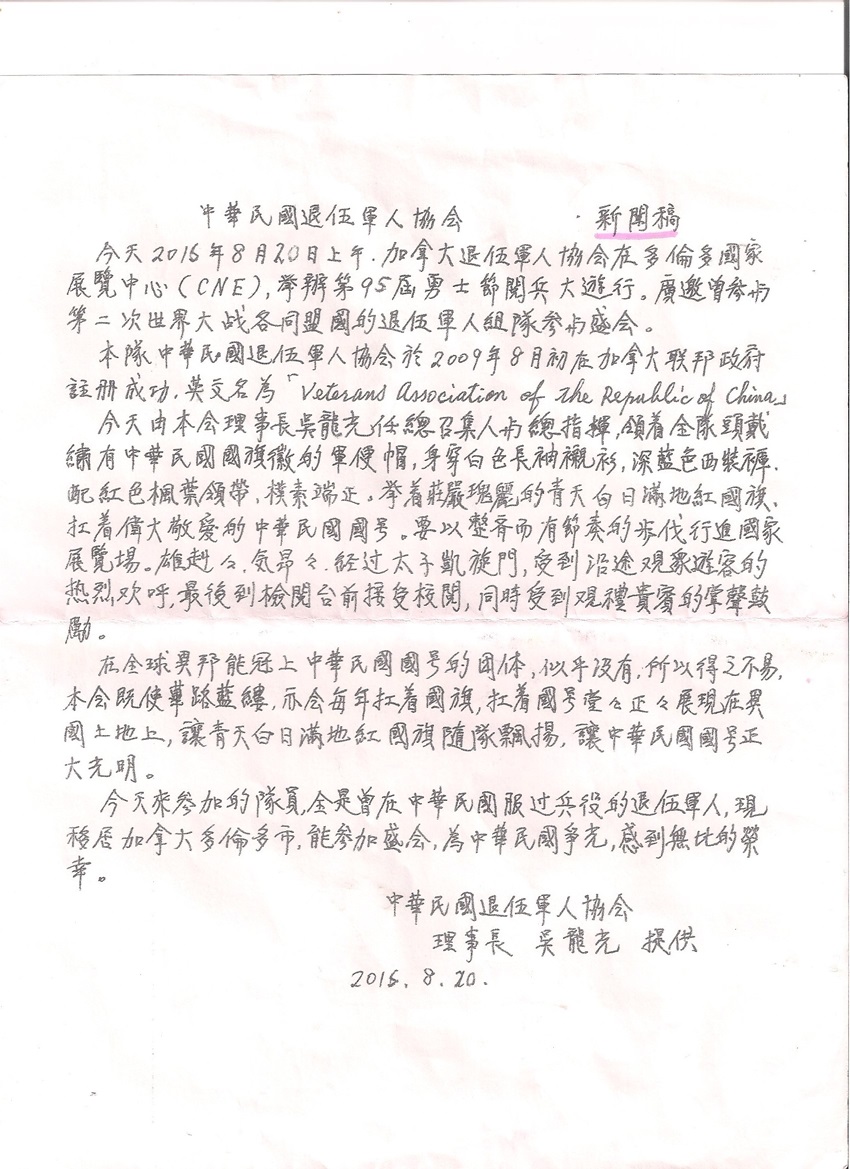 中華民國退伍軍人協会 · 新聞稿
今天2016年8月20日上午.加拿大退伍軍人協会在多倫多國家
展覽中心(CNE),举辦第95屆勇士節閱兵大遊行。廣邀曾參与
第二次世界大战各同盟國的退伍軍人組隊參与盛会。
本隊中華民國退伍軍人協会於2009年8月初在加拿大联邦政府
註册成功.英文名為「Veterans Association of the Republic of China」
今天由本会理事長吳龍光任總召集人与總指揮,領着全隊頭戴
繡有中華民國國旗徽的軍便帽,身穿白色長袖襯衫,深藍色西裝褲.
配紅色楓葉領帶,樸素端正。举着莊嚴瑰麗的青天白日滿地紅國旗、
扛着偉大敬爱的中華民國國号。要以整齐而有節奏的步伐行進國家
展覽場。雄赳々.気昂々.经过太子凱旋門,受到沿途观眾遊客的
热烈欢呼,最後到檢閱台前接受校閱,同時受到观禮貴賓的掌聲鼓
勵。
在全球異邦能冠上中華民國國号的团体,似乎没有.所以得之不易.
本会既使蓽路藍縷,亦会每年扛着國旗,扛着國号堂々正々展現在異
國土地上,讓青天白日滿地紅國旗隨隊飄揚,讓中華民國國号正
大光明。
今天來參加的隊員,全是曾在中華民國服过兵役的退伍軍人,現
移居加拿大多倫多市,能參加盛会,為中華民國爭光,感到無比的榮
幸。
中華民國退伍軍人協会
理事長 吳龍光 提供
2016.8.20.